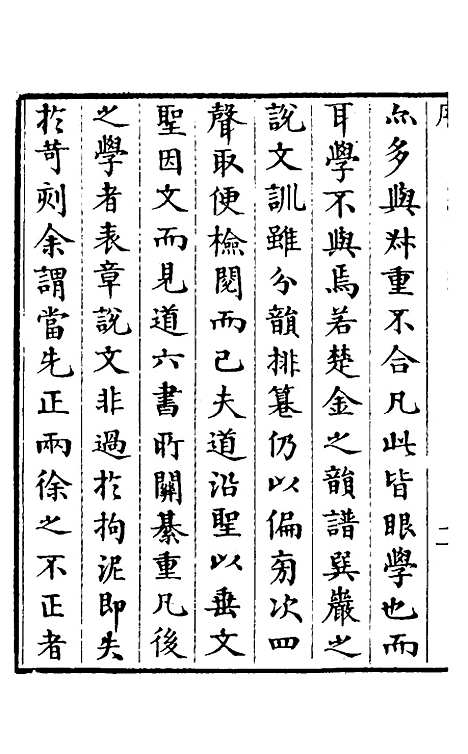 序
二
点多與叔重不合凡此皆眼學也而
耳學不與焉若楚金之韻譜巽巖之
説文訓雖分韻排纂仍以偏旁次四
聲取便檢閱而已夫道沿聖以垂文
聖因文而見道六書所關綦重凡後
之學者表章説文非過於拘泥即失
於苛刻余謂當先正兩徐之不正者